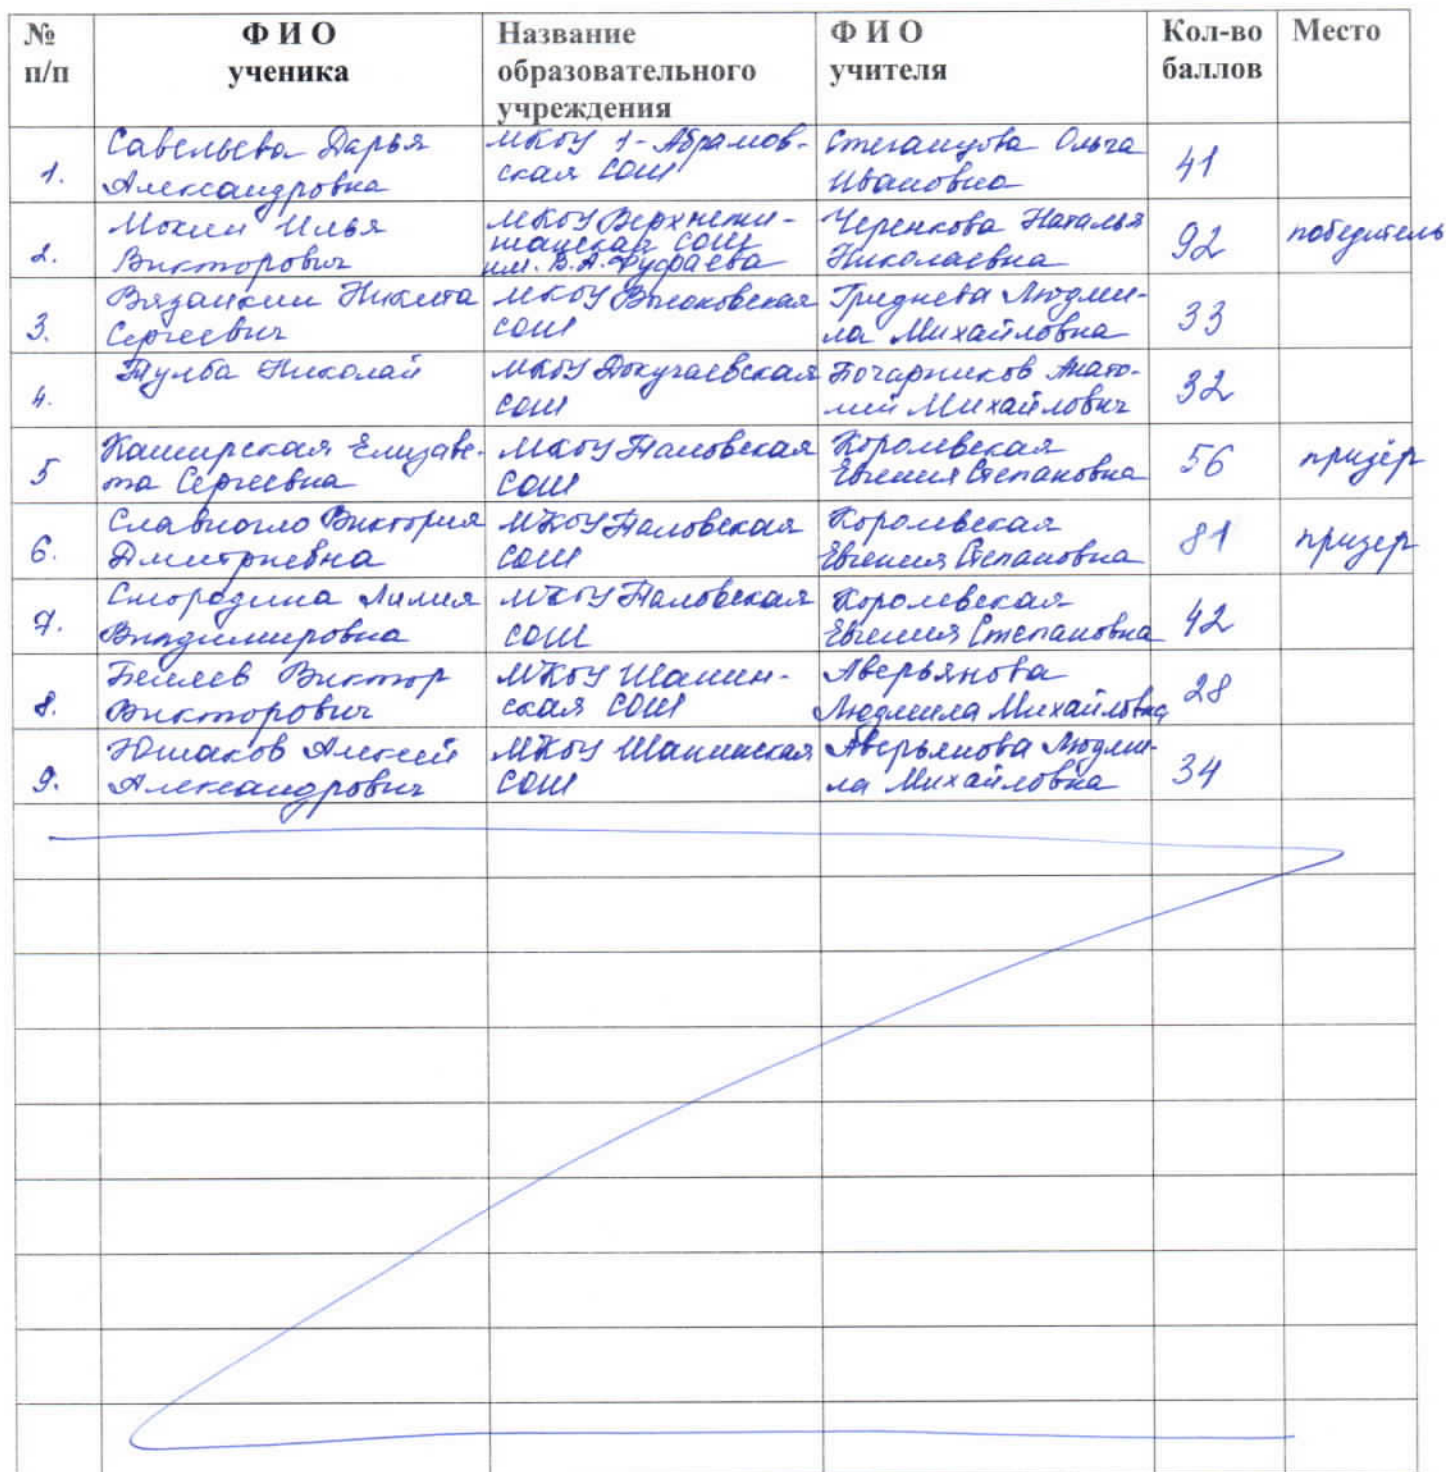 № п/п
Ф И О ученика
Название образовательного учреждения
Ф И О учителя
Кол-во баллов
Место
1.
Савельева Дарья
Александровна
МКОУ 1-Абрамов-
ская СОШ
Стеганцова Ольга
Ивановна
41
2.
Мокин Илья
Викторович
МКОУ Верхнети-
шанская СОШ
им. В.А.
Черенкова Наталья
Николаевна
92
победитель
3.
Вязанкин Никита
Сергеевич
МКОУ Высоковская
СОШ
Гриднева Людми-
ла Михайловна
33
4.
Тулба Николай
МКОУ Докучаевская
СОШ
Бочарников Анато-
лий Михайлович
32
5
Каширская Елизаве-
та Сергеевна
МКОУ Таловская
СОШ
Королевская
Евгения Степановна
56
призёр
6.
Славиогло Виктория
Дмитриевна
МКОУ Таловская
СОШ
Королевская
Евгения Степановна
81
призер
7.
Смородина Лилия
Владимировна
МКОУ Таловская
СОШ
Королевская
Евгения Степановна
42
8.
Виктор
Викторович
МКОУ Шанин-
ская СОШ
Аверьянова
Людмила Михайловна
28
9.
Юшаков Алексей
Александрович
МКОУ Шанинская
СОШ
Аверьянова Людми-
ла Михайловна
34